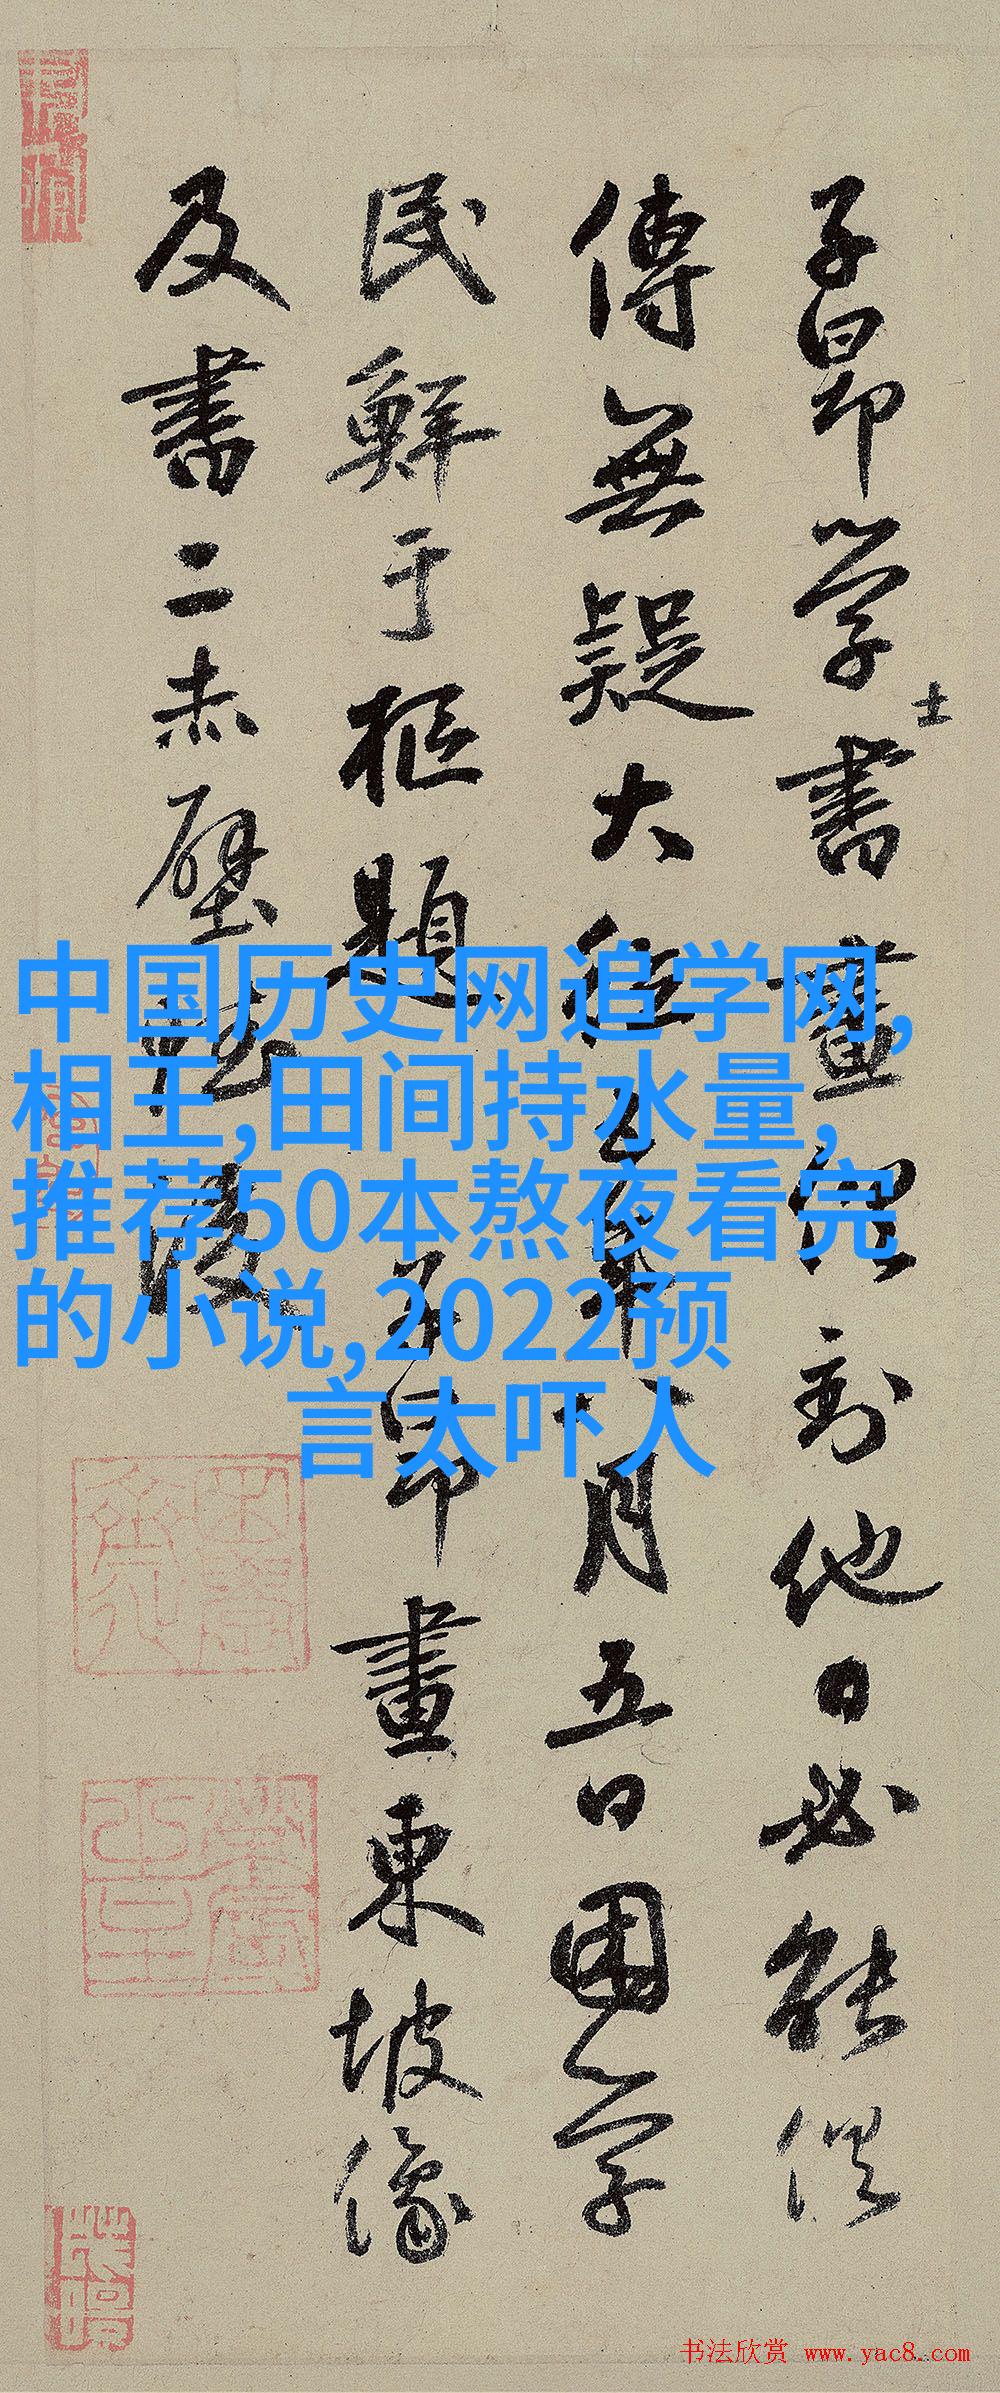 子昂学士書畫俱到他日必能俱
傳無疑大德五年八月五日困学
民鮮于樞題
子昂畫東坡像
及書二赤壁
中国历史网追学网,
相王,田间持水量,
推荐50本熬夜看完
的小说,2022预
言太吓人
书法欣赏 www.yac8.com